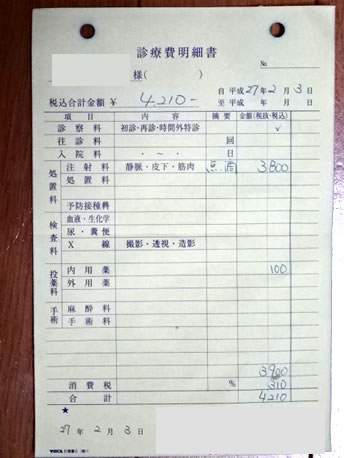 診療費明細書
№
様( )
自 平成27年2月3日
税込合計金額 ¥ 4,210-
至 平成 年 月 日
項目 内容 摘要 金額(税抜・税込)
診察料 初診・再診・時間外特診 ✓
往診料 回
入院料 ・ 〜 ・ 日
処置料 注射料 静脈・皮下・筋肉 点滴 3,800
処置料
予防接種料
検査料 血液・生化学
尿・糞便
X線 撮影・透視・造影
投薬料 内用薬 100
外用薬
手術料 麻酔料
手術料
3,900
消費税 % 310
合計 4210
★
27年2月3日